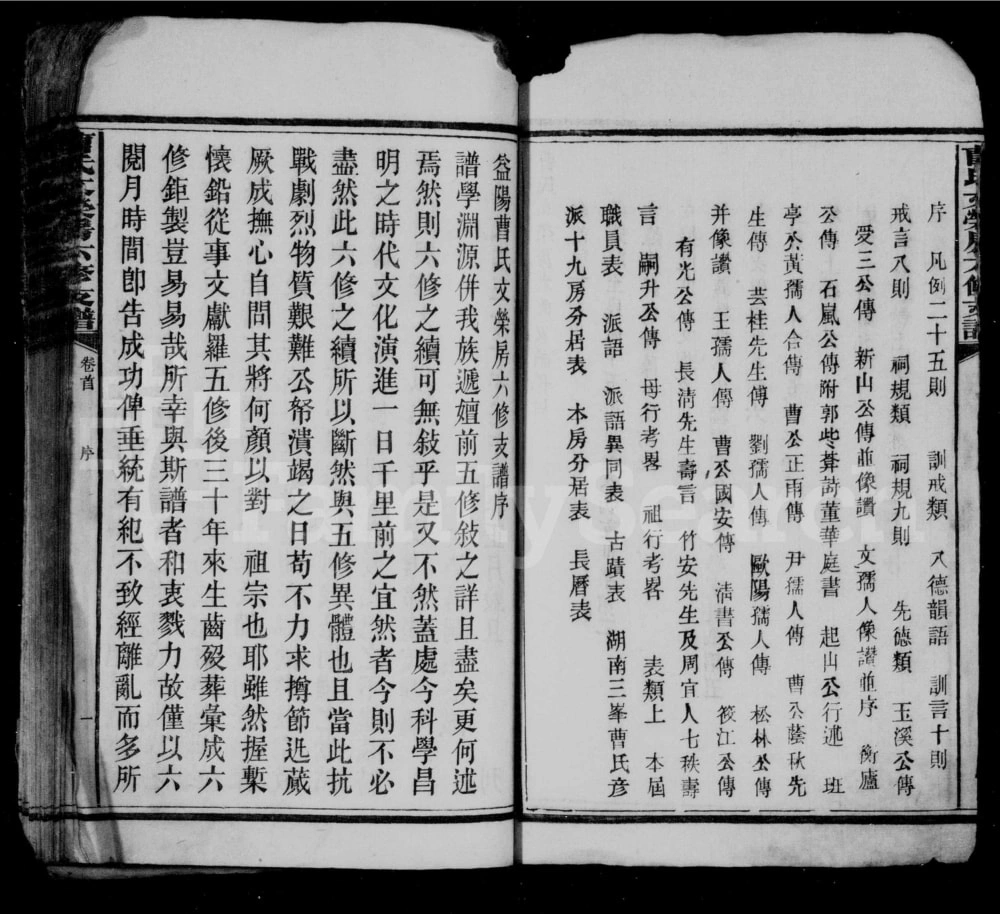 曹氏文榮房六修支譜
序　凡例二十五則　訓戒類　八德韻語　訓言十則
戒言八則　祠規類　祠規九則　先德類　玉溪公傳
愛三公傳　新山公傳並像讚　文孺人像讃並序　衡廬
公傳　石風公傳附郭些葊蒔董華庭書　起山公行述　班
亭公黃孺人合傳　曹公正雨傳　尹孺人傳　曹公蔭秋先
生傳　芸桂先生傳　劉孺人傳　歐陽孺人傳　松林公傳
并像讚　王孺人傳　曹公國安傳　清書公傳　筱江公傳
有光公傳　長清先生壽言　竹安先生及周宜人七秩壽
言　嗣升公傳　母行考畧　祖行考畧　表類上　本屆
職員表　派語　派語異同表　古蹟表　湖南三峯曹氏彦
派十九房分居表　本房分居表　長曆表
益陽曹氏文榮房六修支譜序
譜學淵源併我族遞嬗前五修敍之詳且盡矣更何述
焉然則六修之續可無敍乎是又不然蓋處今科學昌
明之時代文化演進一日千里前之宜然者今則不必
盡然此六修之續所以斷然與五修異體也且當此抗
戰劇烈物質艱難公帑潰竭之日苟不力求撙節迅蕆
厥成撫心自問其將何顏以對　祖宗也耶雖然握槧
懷鉛從事文獻羅五修後三十年來生齒歿葬彙成六
修鉅製豈易易哉所幸與斯譜者和衷戮力故僅以六
閱月時間卽告成功俾垂統有紀不致經離亂而多所
曹氏文榮房六修支譜　卷首　序　一
FamilySearch